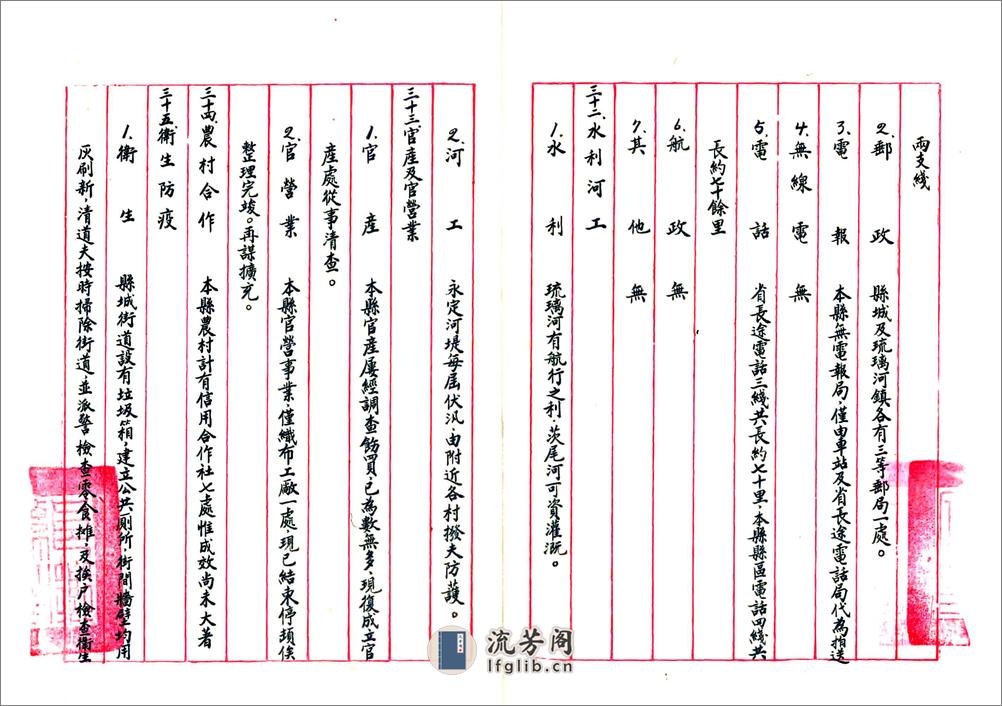 兩支綫
2.郵政 縣城及琉璃河鎮各有三等郵局一處。
3.電報 本縣無電報局，僅由車站及省長途電話局代為拍送
4.無線電 無
5.電話 省長途電話三綫共長約七十里，本縣縣區電話四綫共
長約七十餘里
6.航政 無
7.其他 無
三十二.水利河工
1.水利 琉璃河有航行之利，茨尾河可資灌溉。
2.河工 永定河堤每屆伏汛，由附近各村撥夫防護。
三十三.官產及官營業
1.官產 本縣官產屢經調查飭買，已為數無多，現復成立官
產處從事清查。
2.官營業 本縣官營事業，僅織布工廠一處，現已結束停頓俟
整理完竣。再謀擴充。
三十四.農村合作 本縣農村計有信用合作社七處惟成效尚未大著
三十五.衛生防疫
1.衛生 縣城街道設有垃圾箱，建立公共厠所，街間牆壁均用
灰刷新，清道夫按時掃除街道，並派警檢查零食攤，及挨户檢查衛生
流芳阁
lfglib.cn